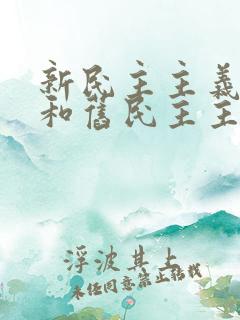 新民主主義
和舊民主主
浮波其上
未经同意禁止转载